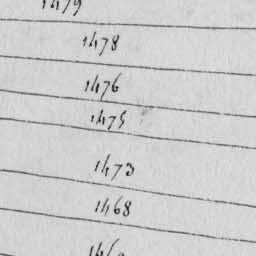 1479
1478
1476
1475
1473
1468